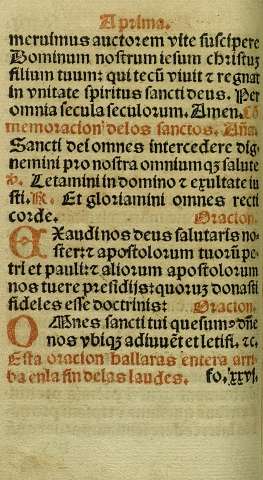 A prima.
meruimus auctorem vite suscipere
Dominum nostrum iesum christuꝫ
filium tuum: qui tecũ viuit ⁊ regnat
in vnitate spiritus sancti deus. Per
omnia secula seculorum. Amen. Cõ
memoracion delos sanctos. Aña.
Sancti dei omnes intercedere dig-
nemini pro nostra omniumq̃ salute
℣. Letamini in domino ⁊ exultate iu
sti. ℟. Et gloriamini omnes recti
corde. Oracion.
EXaudi nos deus salutaris no-
ster: ⁊ apostolorum tuorũ pe-
tri et pauli: ⁊ aliorum apostolorum
nos tuere presidijs: quorũ donasti
fideles esse doctrinis: Oracion.
OMnes sancti tui quesum⁹ dñe
nos vbiqꝫ adiuuẽt et letifi. ⁊c.
Esta oracion hallaras entera arri
ba enla fin delas laudes. fo. xxvj.